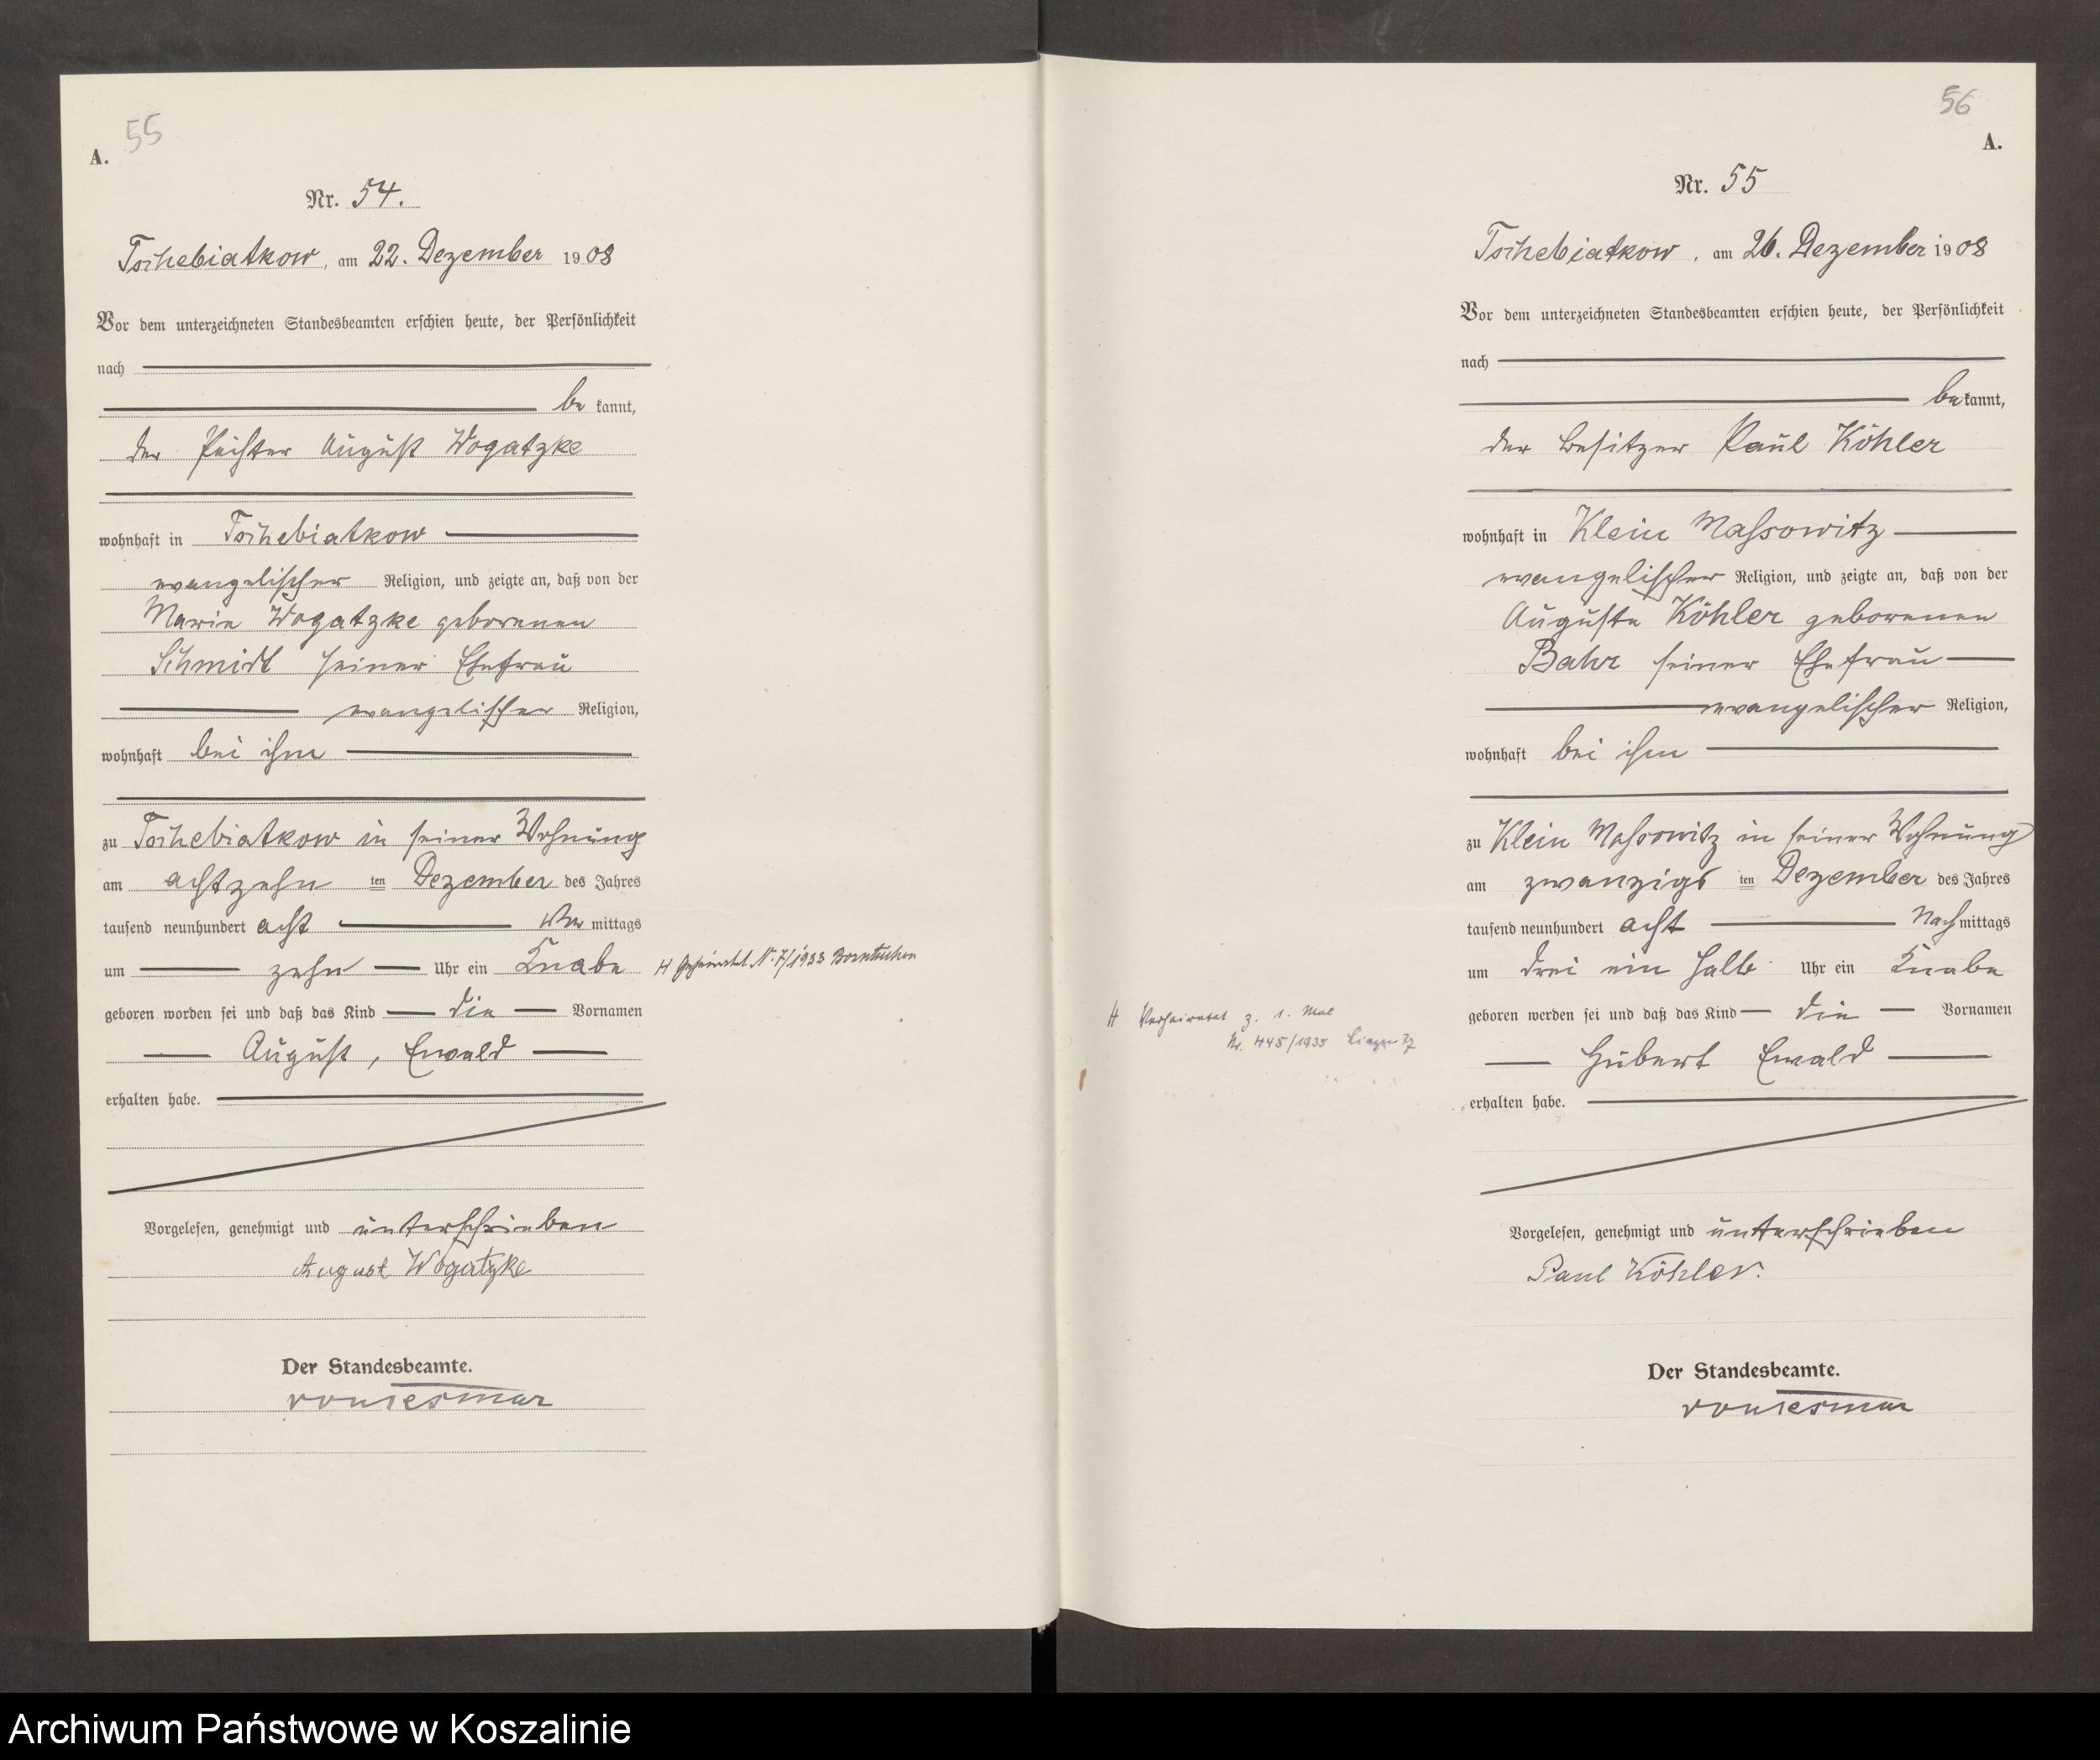 55
A.
Nr. 54.
Tschebiatkow, am 22. Dezember 1908
Vor dem unterzeichneten Standesbeamten erschien heute, der Persönlichkeit
nach
be kannt,
der Pächter August Wogatzke
wohnhaft in Tschebiatkow
evangelischer Religion, und zeigte an, daß von der
Marie Wogatzke geborenen
Schmidt seiner Ehefrau
evangelischer Religion,
wohnhaft bei ihm
zu Tschebiatkow in seiner Wohnung
am achtzehn ten Dezember des Jahres
tausend neunhundert acht Vor mittags
um zehn Uhr ein Knabe
H Geheiratet N. 7/1933 Borntuchen
geboren worden sei und daß das Kind die Vornamen
August, Ewald
erhalten habe.
Vorgelesen, genehmigt und unterschrieben
August Wogatzke
Der Standesbeamte.
56
A.
Nr. 55
Tschebiatkow, am 26. Dezember 1908
Vor dem unterzeichneten Standesbeamten erschien heute, der Persönlichkeit
nach
be kannt,
der Besitzer Paul Köhler
wohnhaft in Klein Massowitz
evangelischer Religion, und zeigte an, daß von der
Auguste Köhler geborenen
Bahr seiner Ehefrau
evangelischer Religion,
wohnhaft bei ihm
zu Klein Massowitz in seiner Wohnung
am zwanzigs ten Dezember des Jahres
tausend neunhundert acht Nach mittags
um drei ein halb Uhr ein Knabe
geboren werden sei und daß das Kind die Vornamen
H Verheiratet z. 1. Mal
Nr. 445/1935
Hubert Ewald
erhalten habe.
Vorgelesen, genehmigt und unterschrieben
Paul Köhler.
Der Standesbeamte.
Archiwum Państwowe w Koszalinie